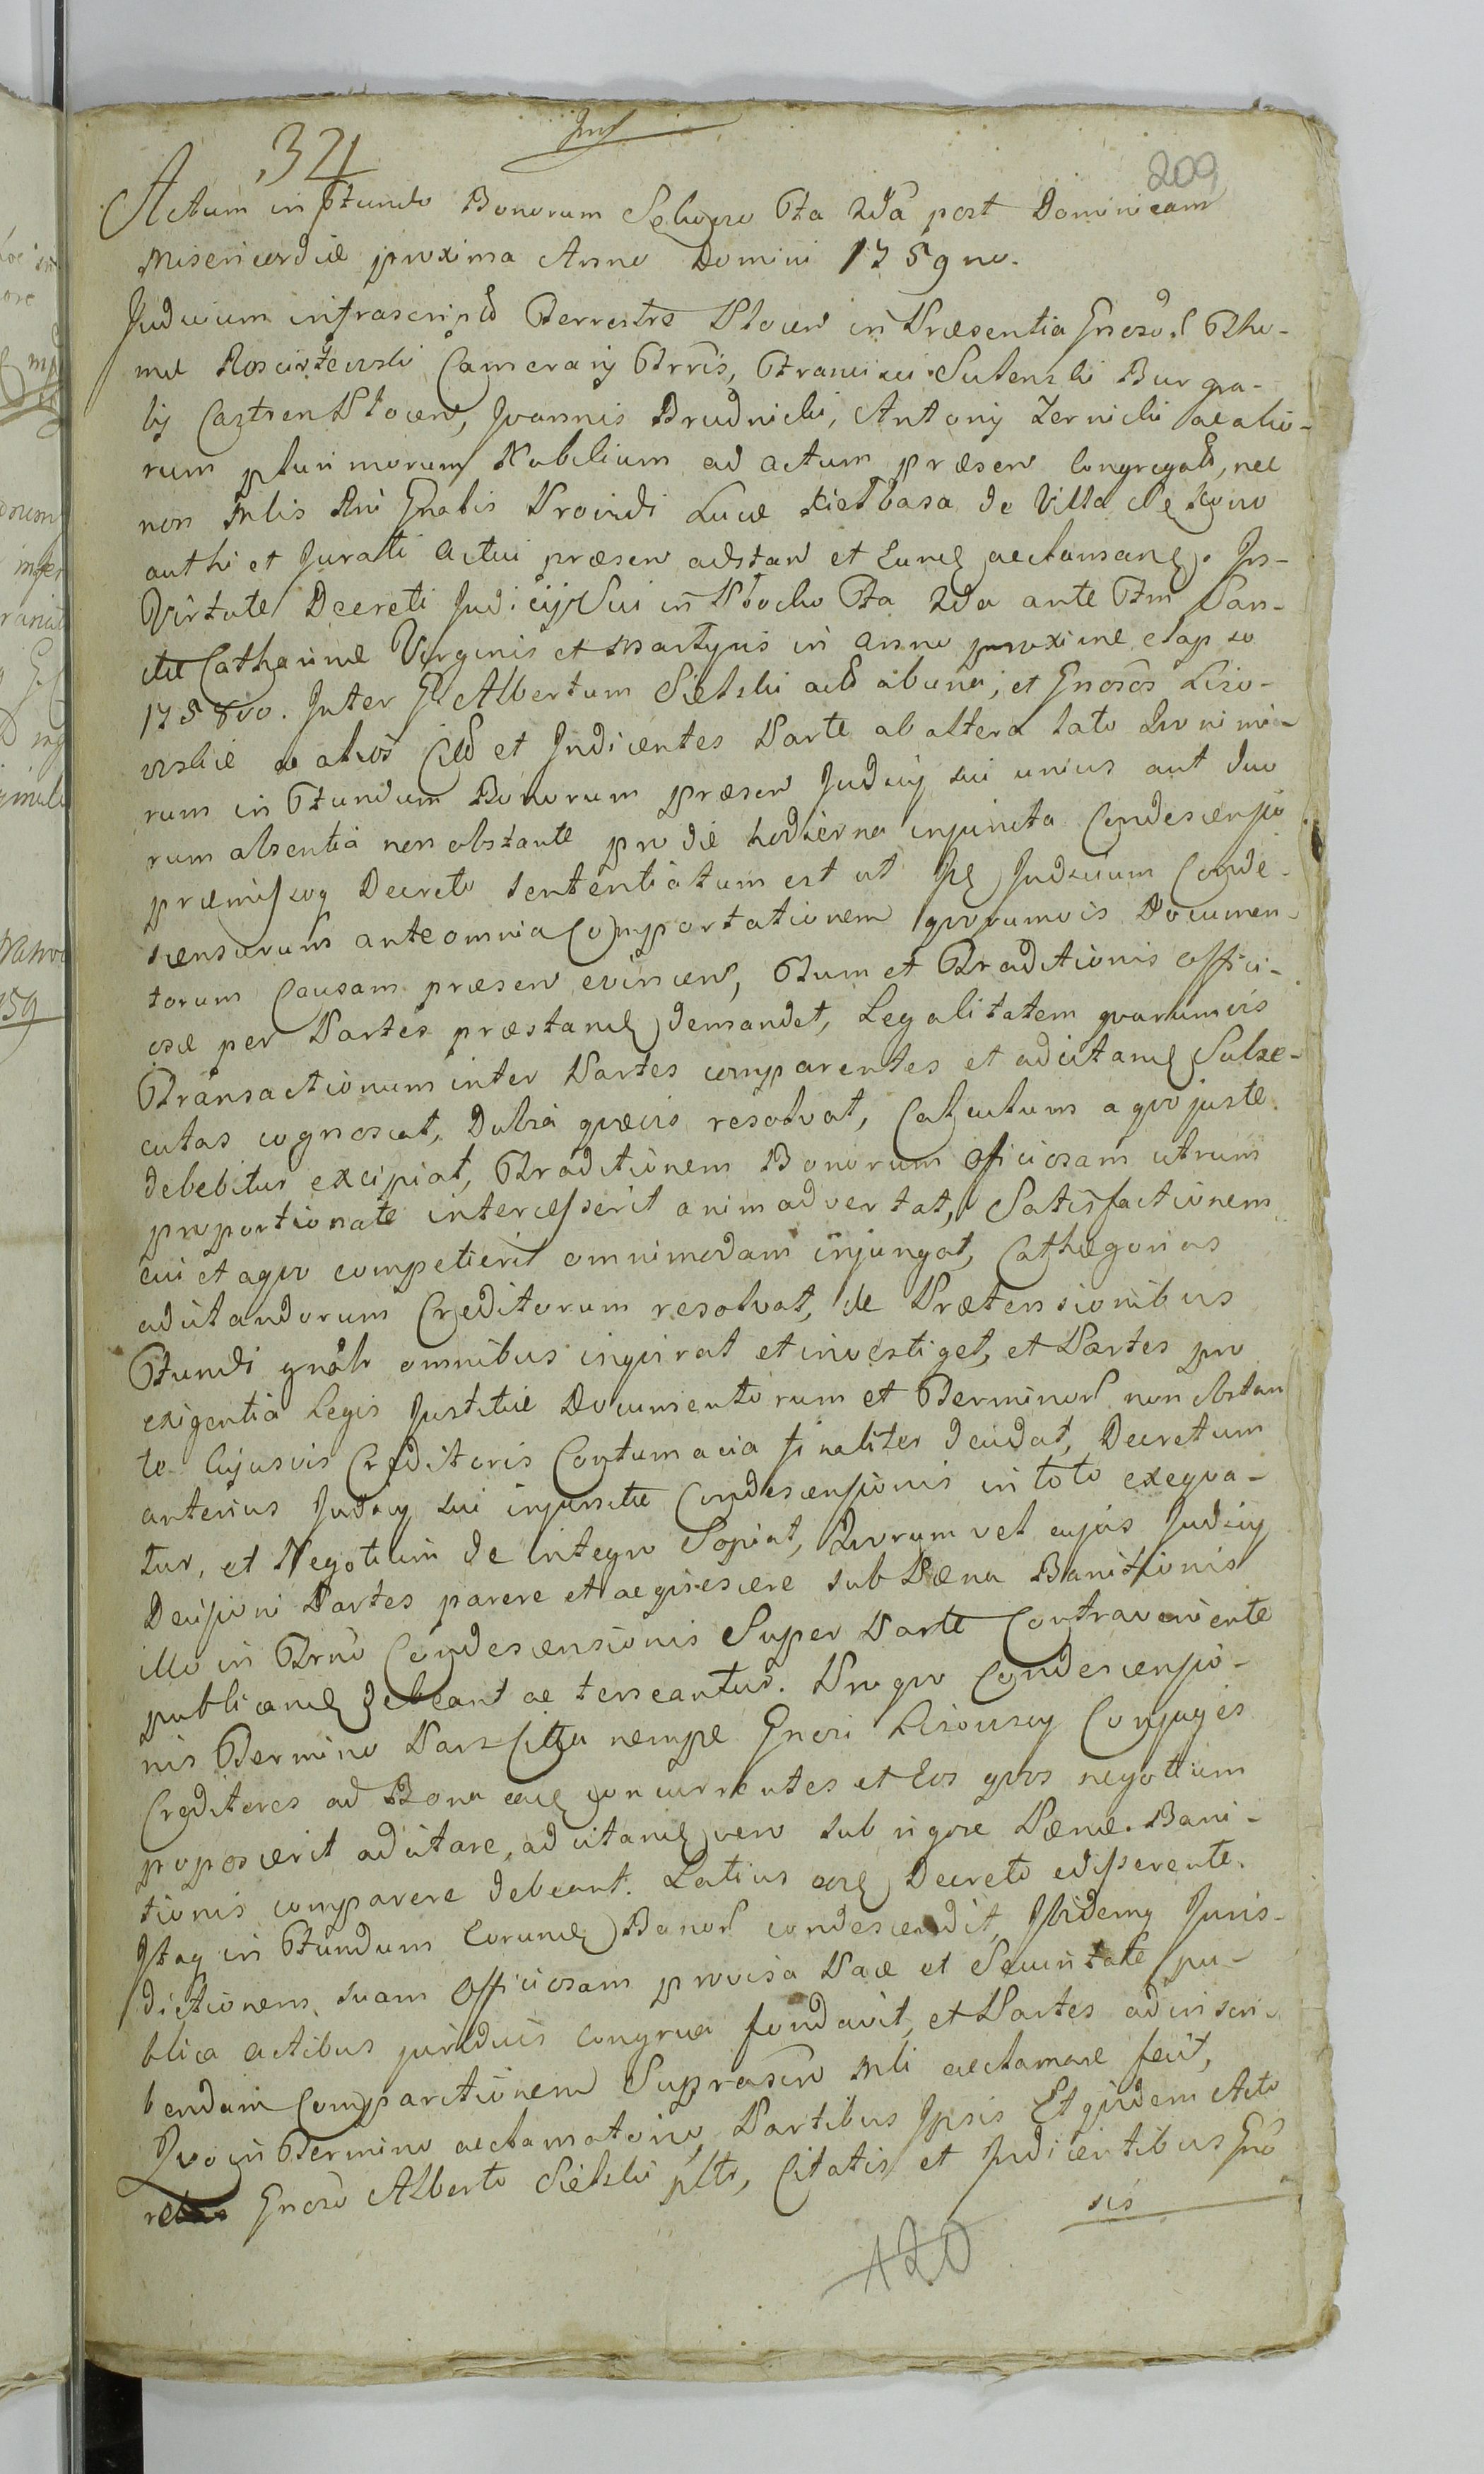 321
209
Actum in Fundo Bonorum Sękowo Fta 2da post Dominicam
Misericordiæ proxima Anno Domini 1759no.
Judicium infrascript Terrestre Plocen in Præsentia Gnosor Tho-
mæ Rosciszewski Camerarij Trris, Francisci Suterski Burgra-
bij Castren Plocen, Joannis Brudnicki, Antonij Zernicki ac alio-
rum plurimorum Nobilium ad actum præsen congregat, nec
non Mlis Rni Gnalis Providi Lucæ Kiełbasa de Villa Sękowo
authi et Jurati actui præsen adstan et Eunq acclamanq. In
Virtute Decreti Judicij Sui in Płocko Fta 2da ante Ftm San-
ctæ Catharinæ Virginis et Martyris in anno proxime elapso
1758vo. Inter G Albertum Sielski ab una, et Gnosos Liso-
wskie ac alios Citt et Indicentes Parte ab altera lato
rum in Fundum Bonorum præsen Judicij sui unius aut duo
rum absentia non obstante pro die hodierna injuncta Condescensio
præmissoq Decreto sententiatum est ut Judicium Conde-
scensurum ante omnia Comportationem quorumvis Documen-
torum Causam præsen evincen, Tum et Traditionis offici-
osæ per Partes præstanq demandet, Legalitatem quarumvis
Transactionum inter Partes comparentes et adcitanq Subse-
cutas cognoscat, Dubia quævis resolvat, Calculum a quo juste
debebitur excipiat, Traditionem Bonorum officiosam utrum
proportionate intercesserit animadvertat, Satisfactionem
cui et a quo competierit omnimodam injungat, Cathegorias
adcitandorum Creditorum resolvat, de Prætensionibus
Fundi gnalr omnibus inquirat et investiget, et Partes pro
exigentia Legis Justitiæ Documentorum et Terminor non obstan
te Cujusvis Creditoris Contumacia finaliter decidat, Decretum
anterius Judicij sui injunctæ Condescensionis in toto exequa-
tur, et Negotium de integro Sopiat, Quorum vel cujus Judicij
Decisioni Partes parere et acquiescere sub Pæna Banitionis
illo in Trno Condescensionis Super Parte Contraveniente
publicanq debeant ac teneantur. Pro quo Condescensio-
nis Termino Pars Citta nempe Gnosi Lisowscy Conjuges
Creditores ad Bona eaq concurrentes et Eos quos negotium
poposcerit adcitare, adcitanq vero sub rigore Pænæ Bani-
tionis comparere debeant. Latius eoq Decreto edisserente.
Itaq in Fundum Eorunq Bonor condescendit, Ibidemq Juris-
dictionem suam officiosam provisa Pace et Securitate pu-
blica actibus juridicis congrua fundavit, et Partes ad inscri-
bendam Comparitionem Suprascrn Mli acclamare fecit,
Quo in Termino acclamatorio Partibus Ipsis Et quidem Acto
re Gnoso Alberto Sielski pltr, Citatis et Indicentibus Gno
sis
120